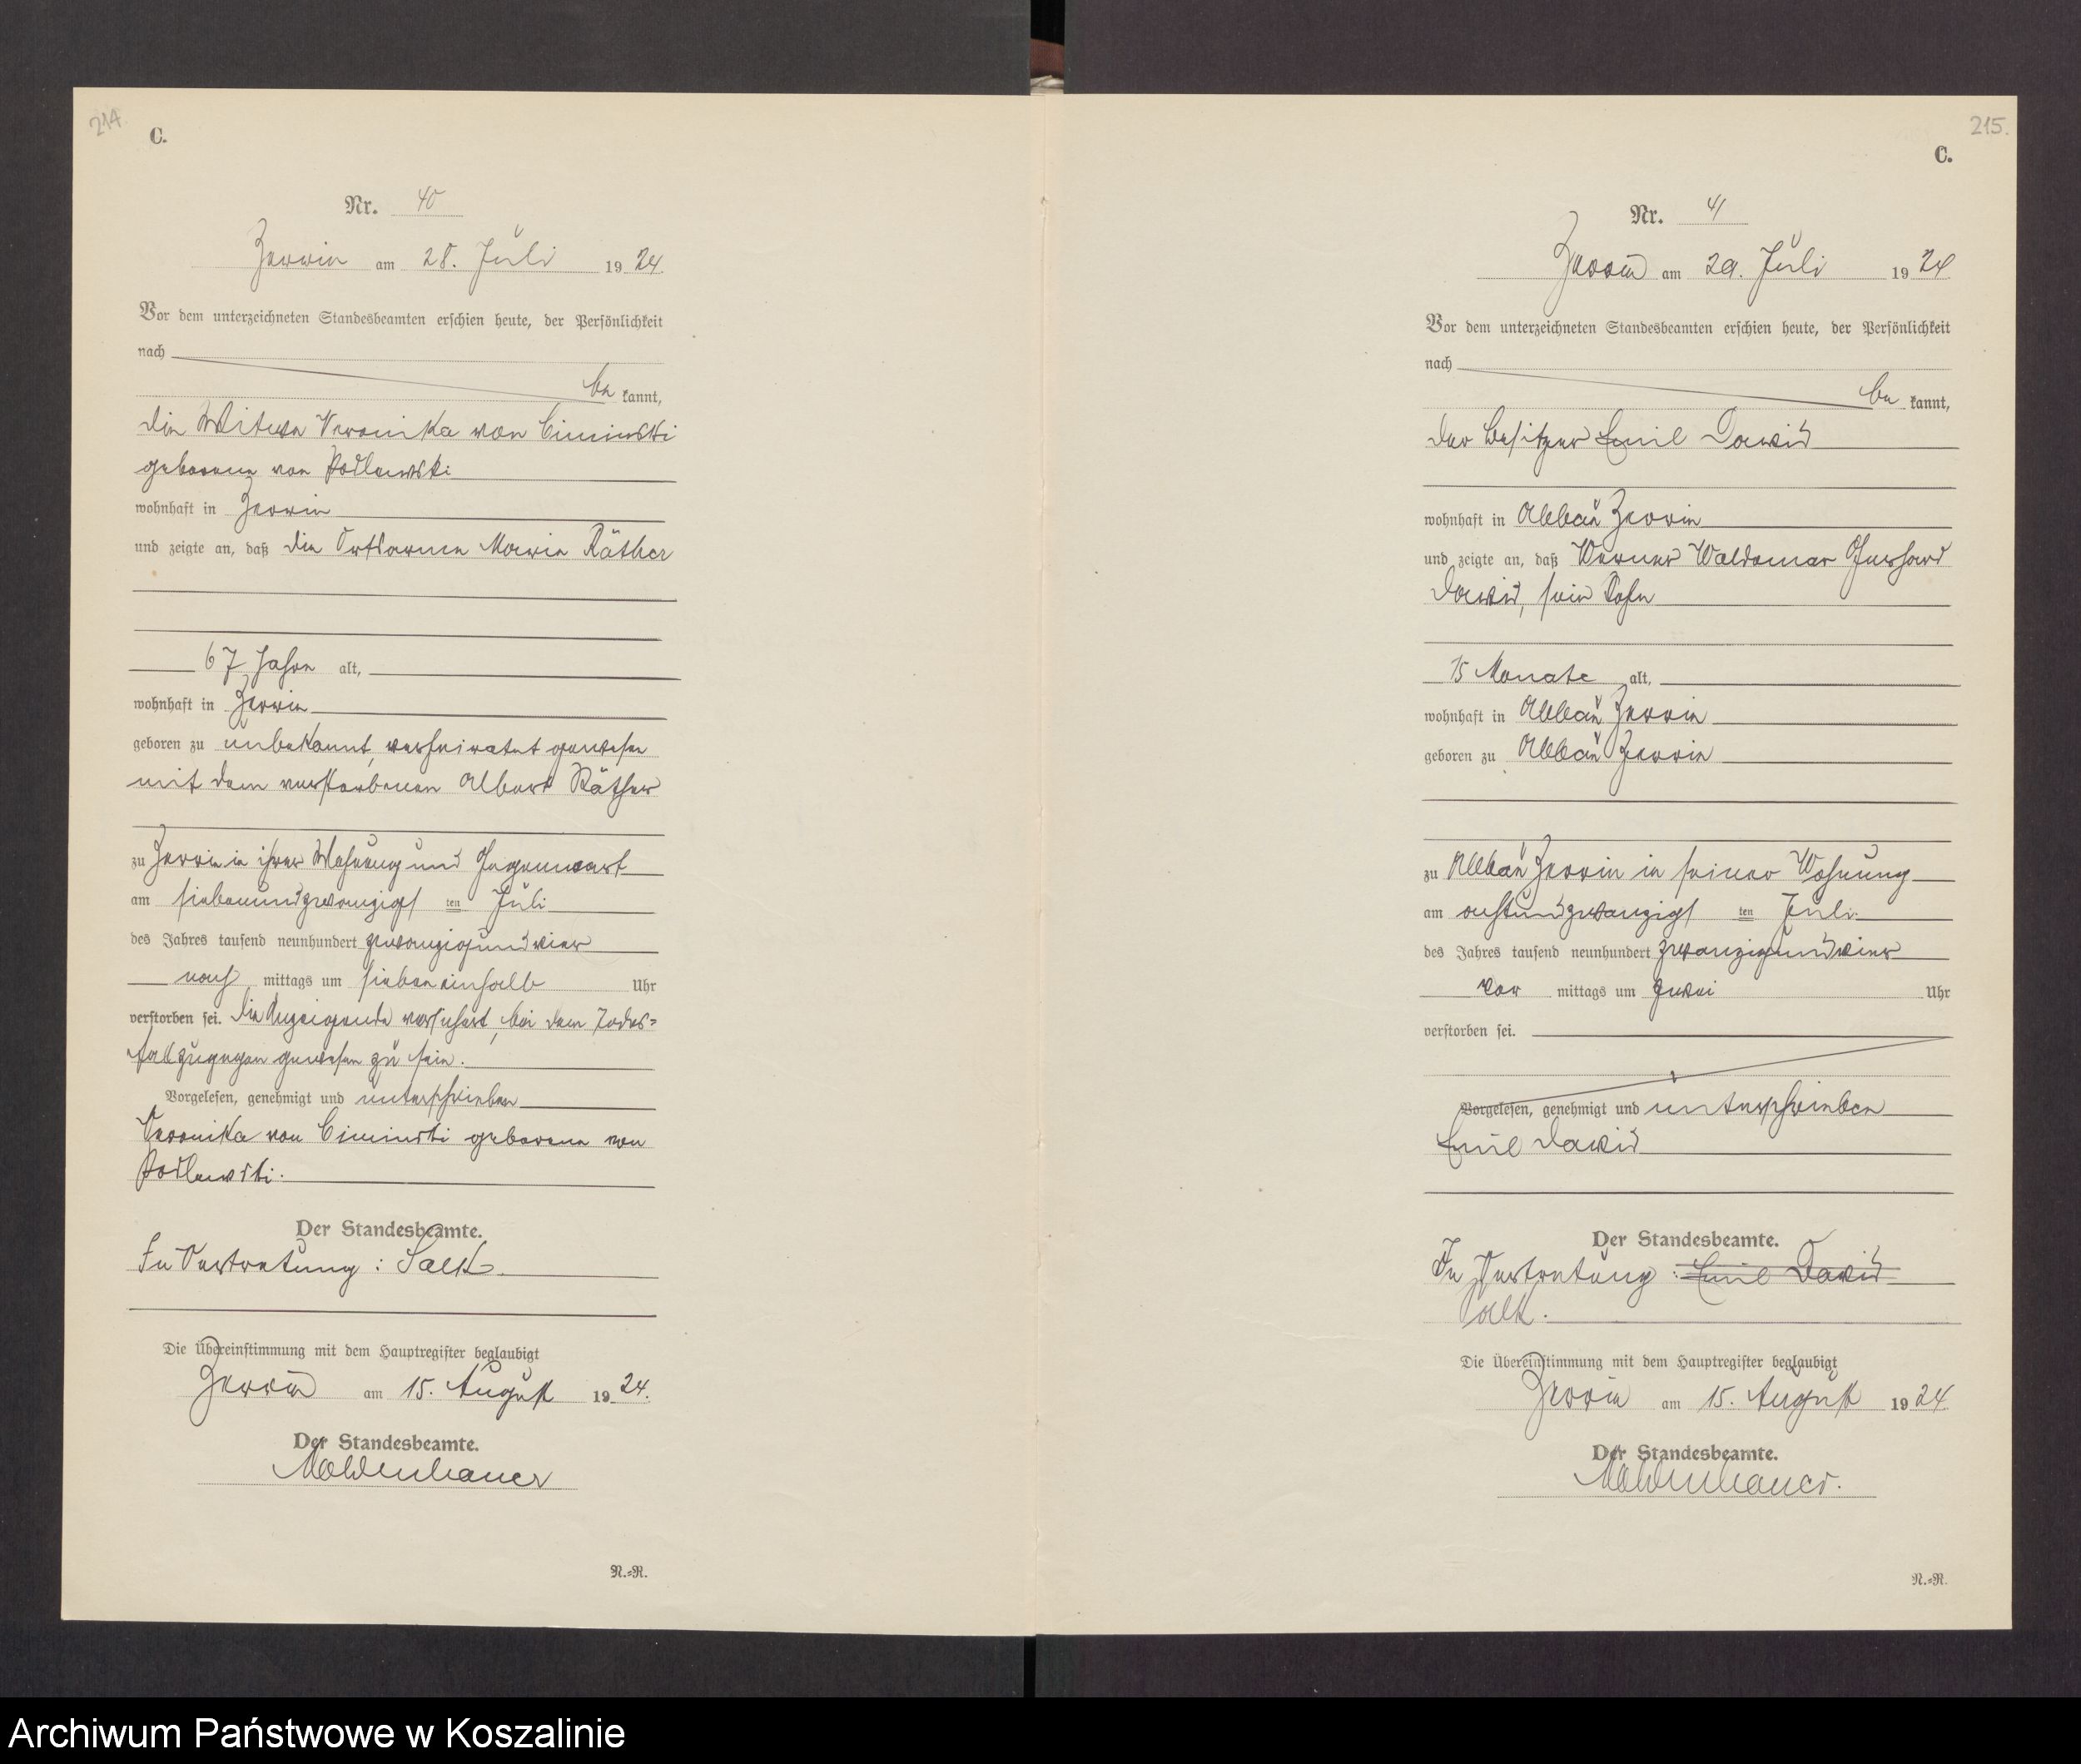 214.
C.
Nr. 40
Zerrin am 28. Juli 1924.
Vor dem unterzeichneten Standesbeamten erschien heute, der Persönlichkeit
nach
be kannt,
die Witwe Veronika von Ciminski
geborene von Podlewski
wohnhaft in Zerrin
und zeigte an, daß die Ortsarme Marie Räther
67 Jahre alt,
wohnhaft in Zerrin
geboren zu unbekannt, verheiratet gewesen
mit dem verstorbenen Albert Räther
zu Zerrin in ihrer Wohnung und Gegenwart
am siebenundzwanzigs ten Juli
des Jahres tausend neunhundert zwanzigundvier
nach mittags um sieben einhalb Uhr
verstorben sei. Die Anzeigende versichert, bei dem Todes=
fall zugegen gewesen zu sein.
Vorgelesen, genehmigt und unterschrieben
Veronika von Ciminski geborene von
Podlewski.
Der Standesbeamte.
In Vertretung: Salk.
Die Übereinstimmung mit dem Hauptregister beglaubigt
Zerrin am 15. August 1924.
Der Standesbeamte.
Moldenhauer
N.=R.
215.
C.
Nr. 41
Zerrin am 29. Juli 1924
Vor dem unterzeichneten Standesbeamten erschien heute, der Persönlichkeit
nach
be kannt,
der Besitzer Emil Dawid
wohnhaft in Abbau Zerrin
und zeigte an, daß Werner Waldemar Gerhard
Dawid, sein Sohn
15 Monate alt,
wohnhaft in Abbau Zerrin
geboren zu Abbau Zerrin
zu Abbau Zerrin in seiner Wohnung
am achtundzwanzigs ten Juli
des Jahres tausend neunhundert zwanzigundvier
vor mittags um zwei Uhr
verstorben sei.
Vorgelesen, genehmigt und unterschrieben
Emil Dawid
Der Standesbeamte.
In Vertretung: Emil Dawid
Salk.
Die Übereinstimmung mit dem Hauptregister beglaubigt
Zerrin am 15. August 1924
Der Standesbeamte.
Moldenhauer.
N.=R.
Archiwum Państwowe w Koszalinie